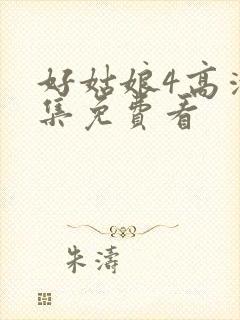 好姑娘4高清
集免費看
朱濤